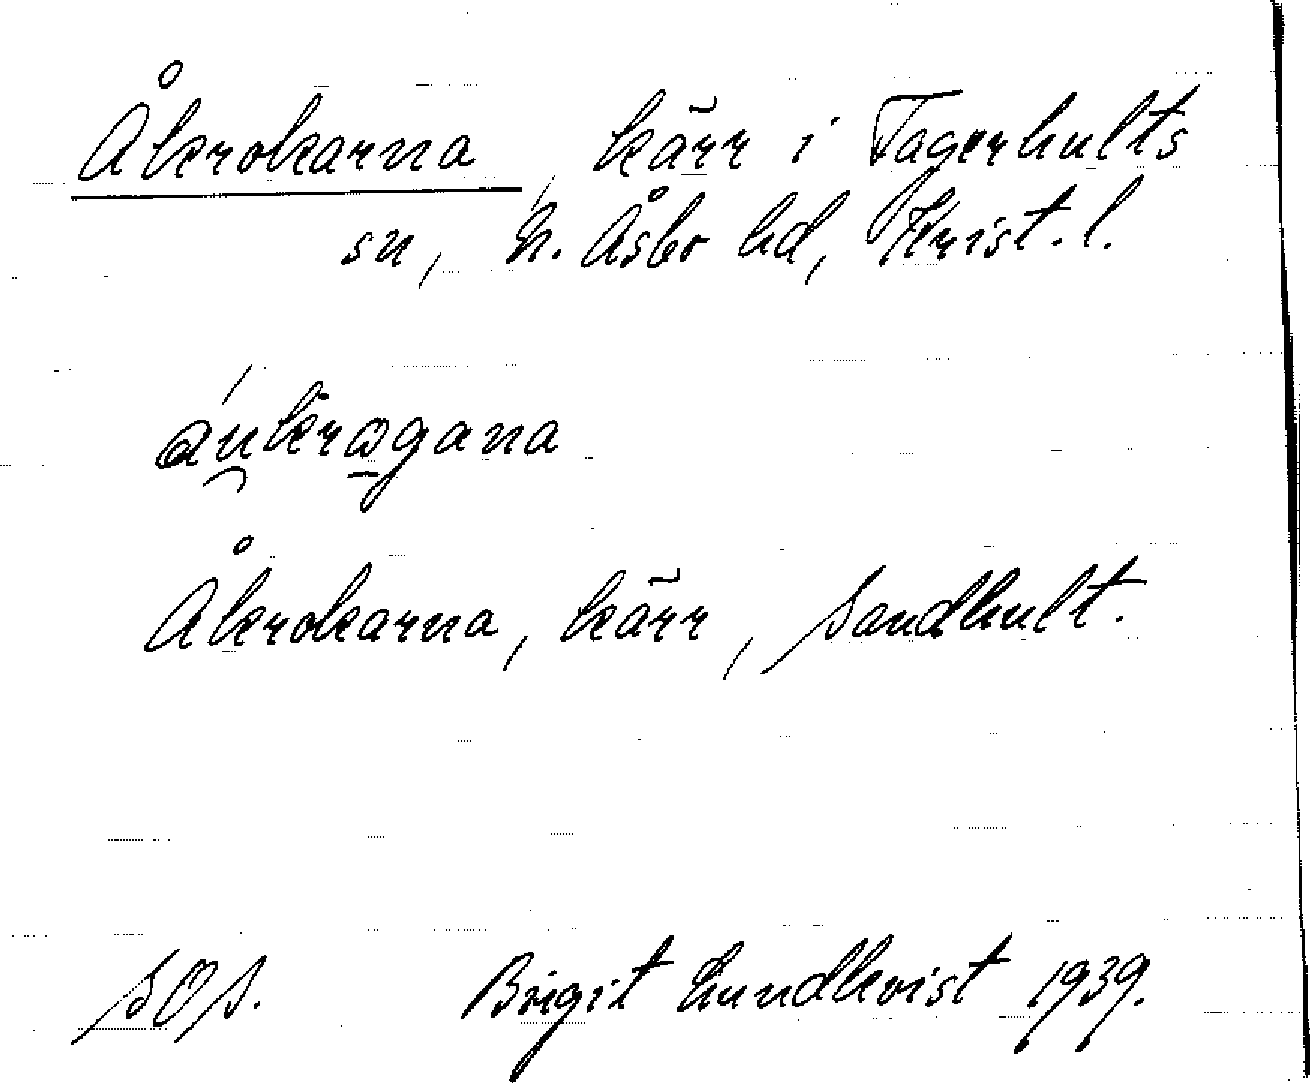 Åkrokarna, kärr i Fagerhults
sn, N. Åsbo hd, Krist. l.
Åkrokarna, kärr, Sandhult.
SOS. Birgit Lundkvist 1939.